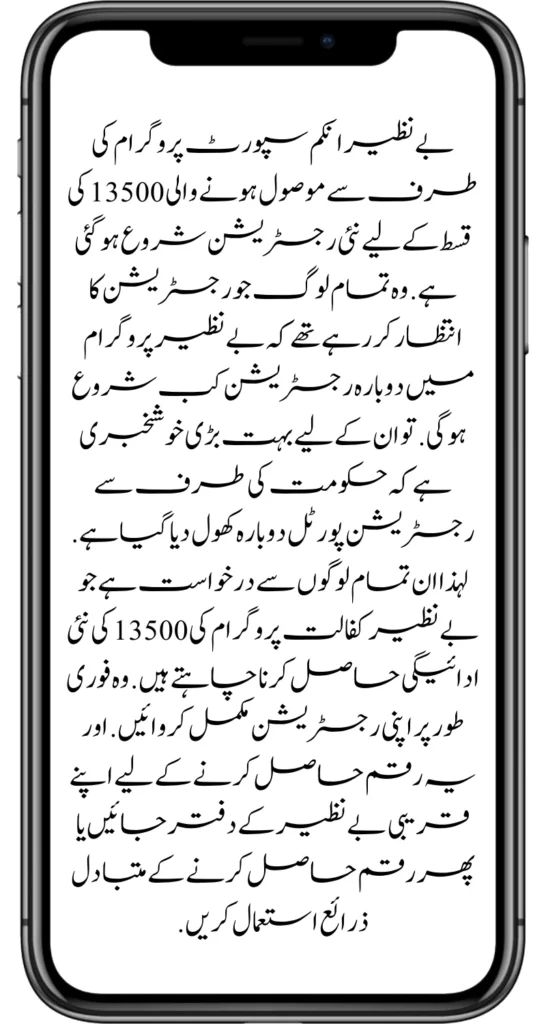 بے نظیر انکم سپورٹ پروگرام کی
طرف سے موصول ہونے والی 13500 کی
قسط کے لیے نئی رجسٹریشن شروع ہو گئی
ہے. وہ تمام لوگ جو رجسٹریشن کا
انتظار کر رہے تھے کہ بے نظیر پروگرام
میں دوبارہ رجسٹریشن کب شروع
ہوگی. تو ان کے لیے بہت بڑی خوشخبری
ہے کہ حکومت کی طرف سے
رجسٹریشن پورٹل دوبارہ کھول دیا گیا ہے.
لہذا ان تمام لوگوں سے درخواست ہے جو
بے نظیر کفالت پروگرام کی 13500 کی نئی
ادائیگی حاصل کرنا چاہتے ہیں. وہ فوری
طور پر اپنی رجسٹریشن مکمل کروائیں. اور
یہ رقم حاصل کرنے کے لیے اپنے
قریبی بے نظیر کے دفتر جائیں یا
پھر رقم حاصل کرنے کے متبادل
ذرائع استعمال کریں.